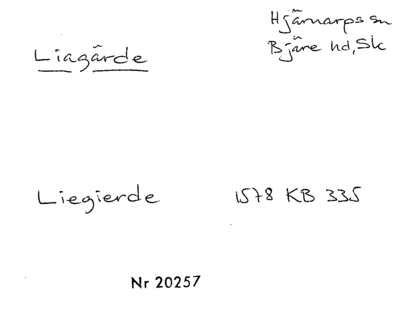 Hjärnarps sn
Liagärde
Bjäre hd, Sk
Liegierde 1578 KB 335
Nr 20257